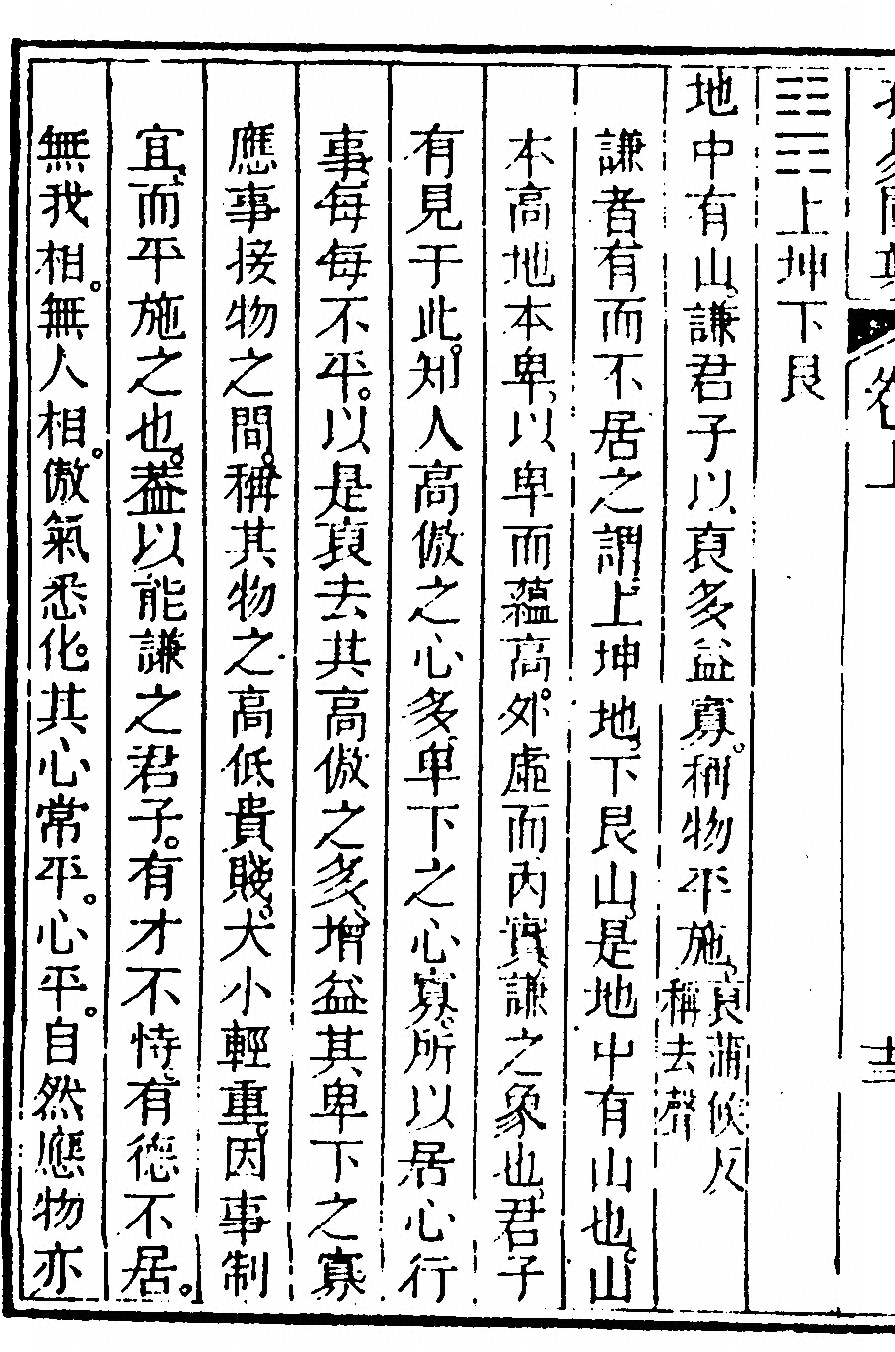 ䷎上坤下艮
地中有山。謙君子以裒多益寡。稱物平施。裒蒲候反稱去聲
謙者有而不居之謂。上坤地。下艮山。是地中有山也。山
本高地本卑。以卑而蘊高。外虛而內實。謙之象也。君子
有見于此。知人高傲之心多。卑下之心寡。所以居心行
事。每每不平。以是裒去其高傲之多。增益其卑下之寡
應事接物之間。稱其物之高低貴賤。大小輕重。因事制
宜。而平施之也。葢以能謙之君子。有才不恃。有德不居。
無我相。無人相。傲氣悉化。其心常平。心平。自然應物亦